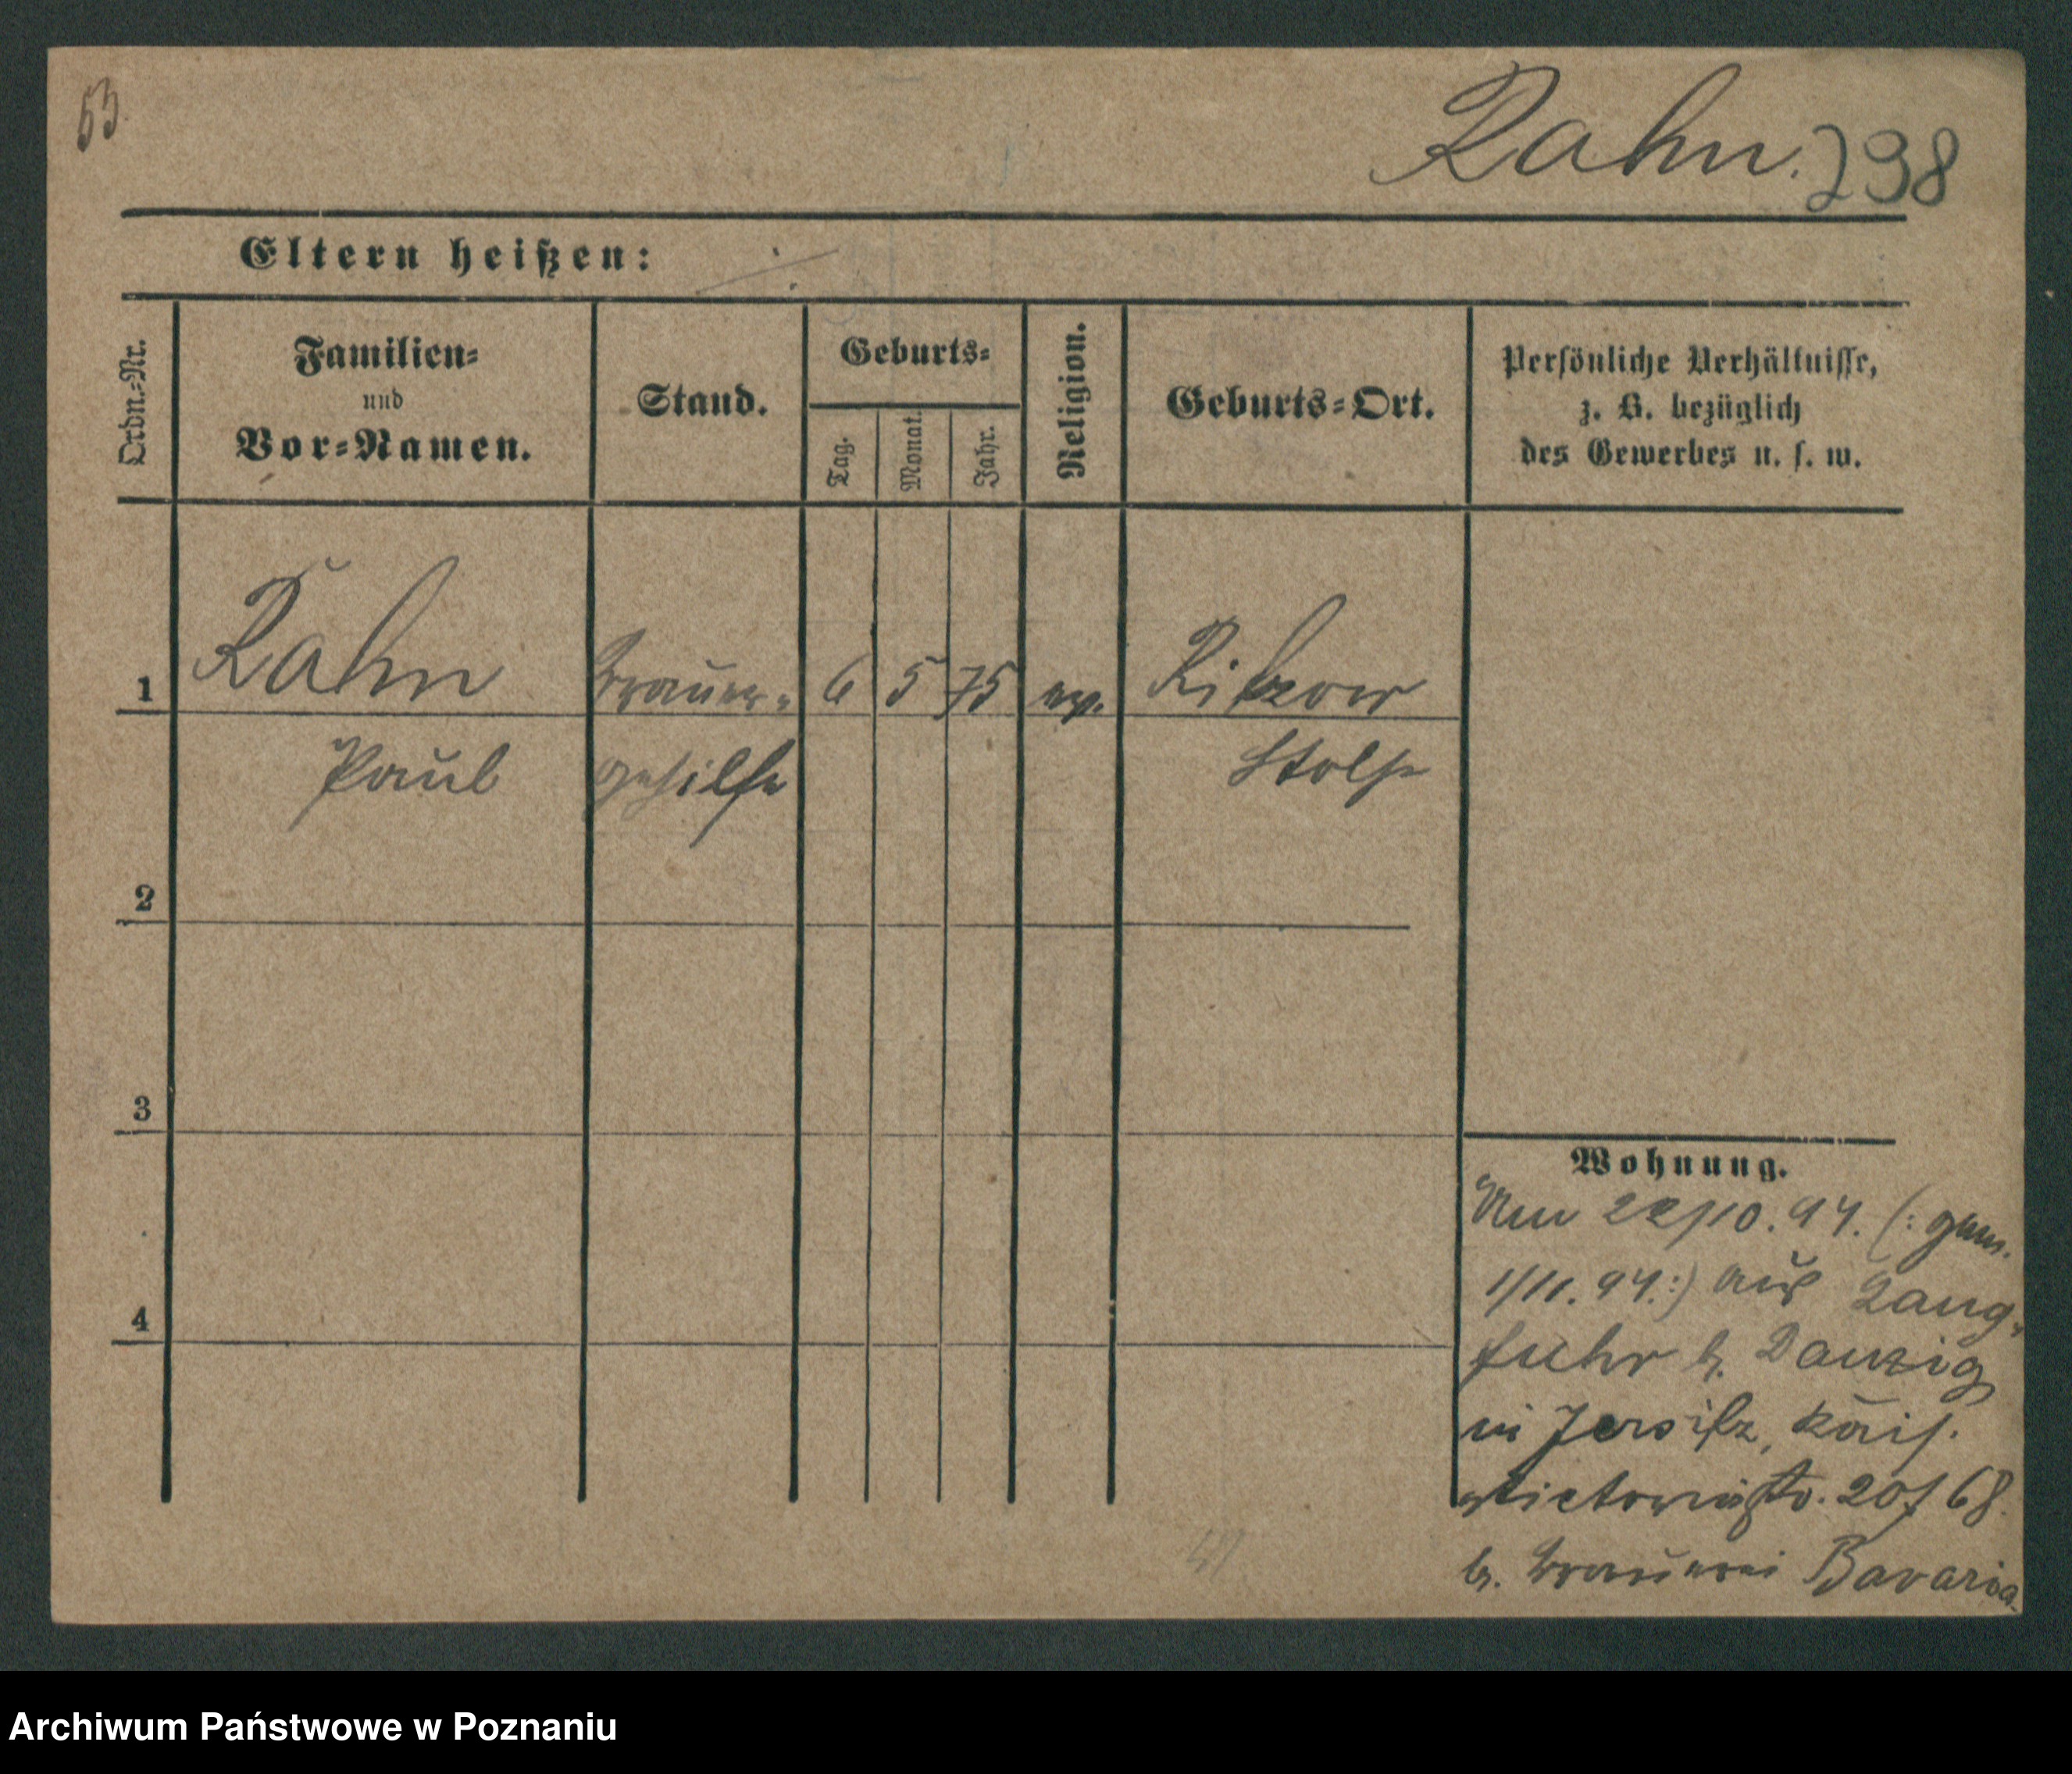 53
Rahn. 238
Eltern heißen: ./.
Ordn.=Nr.
Familien=
und
Vor=Namen.
Stand.
Geburts=
Tag.
Monat.
Jahr.
Religion.
Geburts=Ort.
Persönliche Verhältnisse,
z. B. bezüglich
des Gewerbes u. s. w.
1 Rahn Brauer= 6 5 75 ev.
Paul gehilfe Stolp
2
3
4
Wohnung.
10. 94. (: gem.
1/11. 94 :) aus Lang=
fuhr b. Danzig
in Jersitz, Kais.
Victoriastr. 20/68
b. Brauerei Bavaria
Archiwum Państwowe w Poznaniu